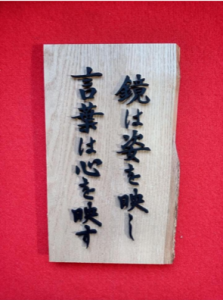 鏡は姿を映し
言葉は心を映す